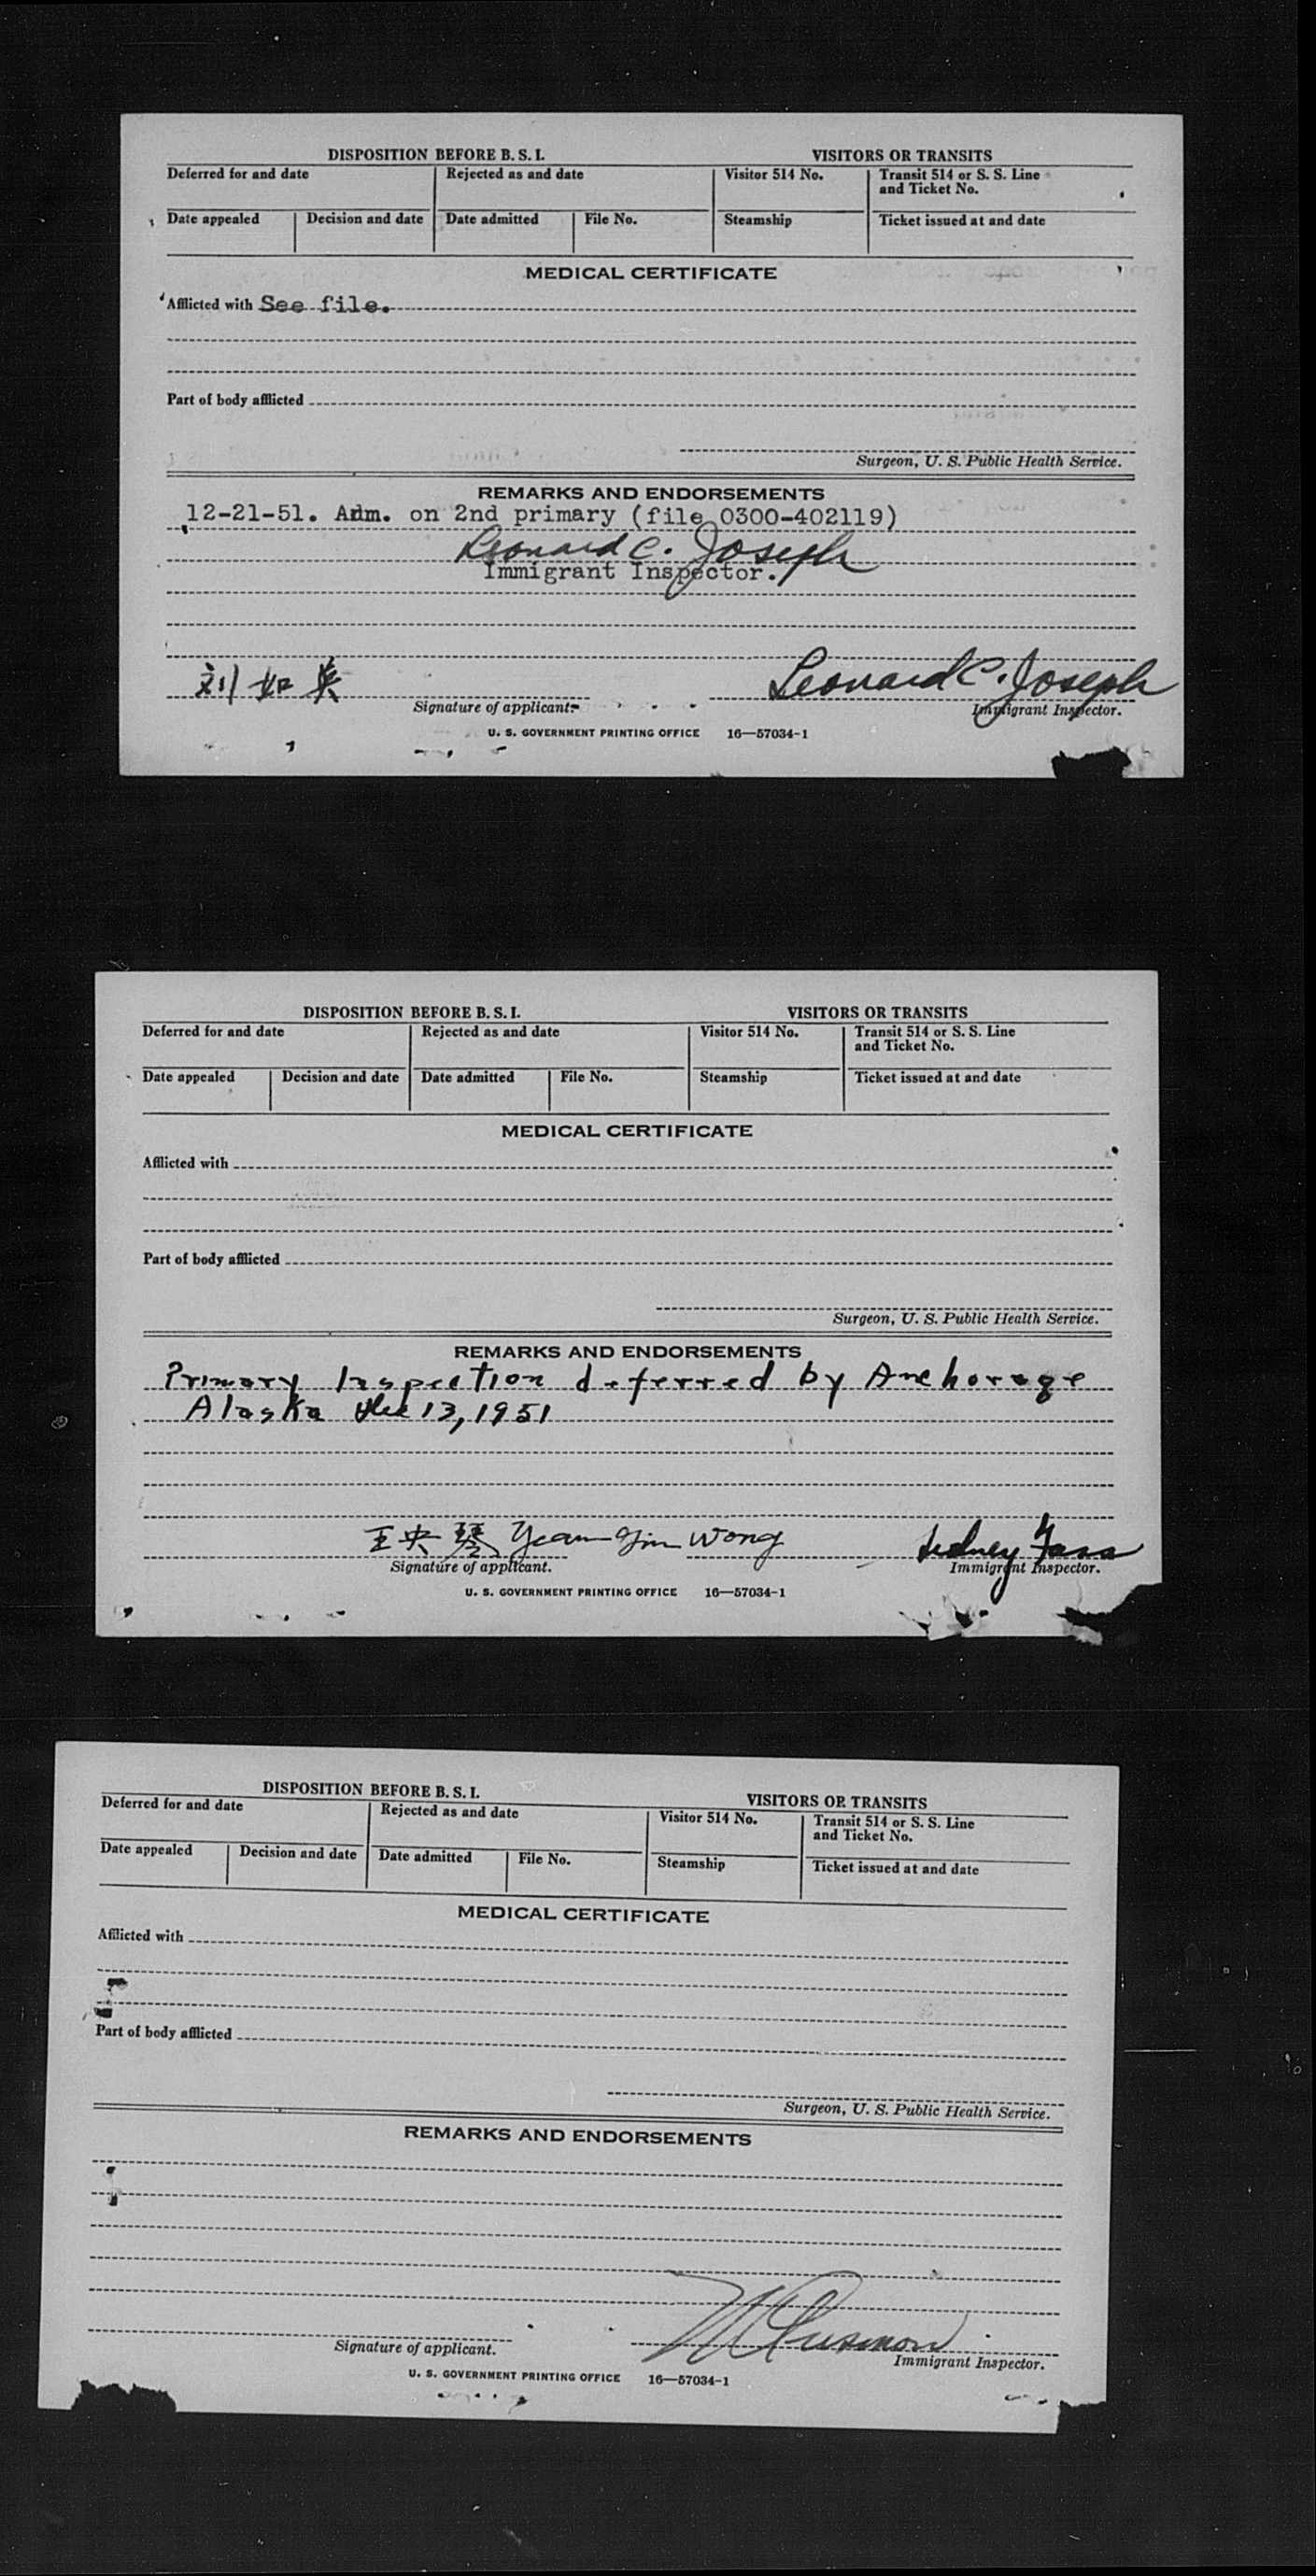 DISPOSITION BEFORE B. S. I. VISITORS OR TRANSITS
Deferred for and date Rejected as and date Visitor 514 No. Transit 514 or S. S. Line
and Ticket No.
Date appealed Decision and date Date admitted File No. Steamship Ticket issued at and date
MEDICAL CERTIFICATE
Afflicted with See file.
Part of body afflicted
Surgeon, U. S. Public Health Service.
REMARKS AND ENDORSEMENTS
12-21-51. Adm. on 2nd primary (file 0300-402119)
Leonard C. Joseph
Immigrant Inspector.
刘如 Leonard C. Joseph
Signature of applicant. Immigrant Inspector.
U. S. GOVERNMENT PRINTING OFFICE 16—57034-1
DISPOSITION BEFORE B. S. I. VISITORS OR TRANSITS
Deferred for and date Rejected as and date Visitor 514 No. Transit 514 or S. S. Line
and Ticket No.
Date appealed Decision and date Date admitted File No. Steamship Ticket issued at and date
MEDICAL CERTIFICATE
Afflicted with
Part of body afflicted
Surgeon, U. S. Public Health Service.
REMARKS AND ENDORSEMENTS
Primary Inspection deferred by Anchorage
Alaska Dec 13, 1951
王央琴 Yeam Yin Wong Sidney
Signature of applicant. Immigrant Inspector.
U. S. GOVERNMENT PRINTING OFFICE 16—57034-1
DISPOSITION BEFORE B. S. I. VISITORS OR TRANSITS
Deferred for and date Rejected as and date Visitor 514 No. Transit 514 or S. S. Line
and Ticket No.
Date appealed Decision and date Date admitted File No. Steamship Ticket issued at and date
MEDICAL CERTIFICATE
Afflicted with
Part of body afflicted
Surgeon, U. S. Public Health Service.
REMARKS AND ENDORSEMENTS
Signature of applicant. Immigrant Inspector.
U. S. GOVERNMENT PRINTING OFFICE 16—57034-1